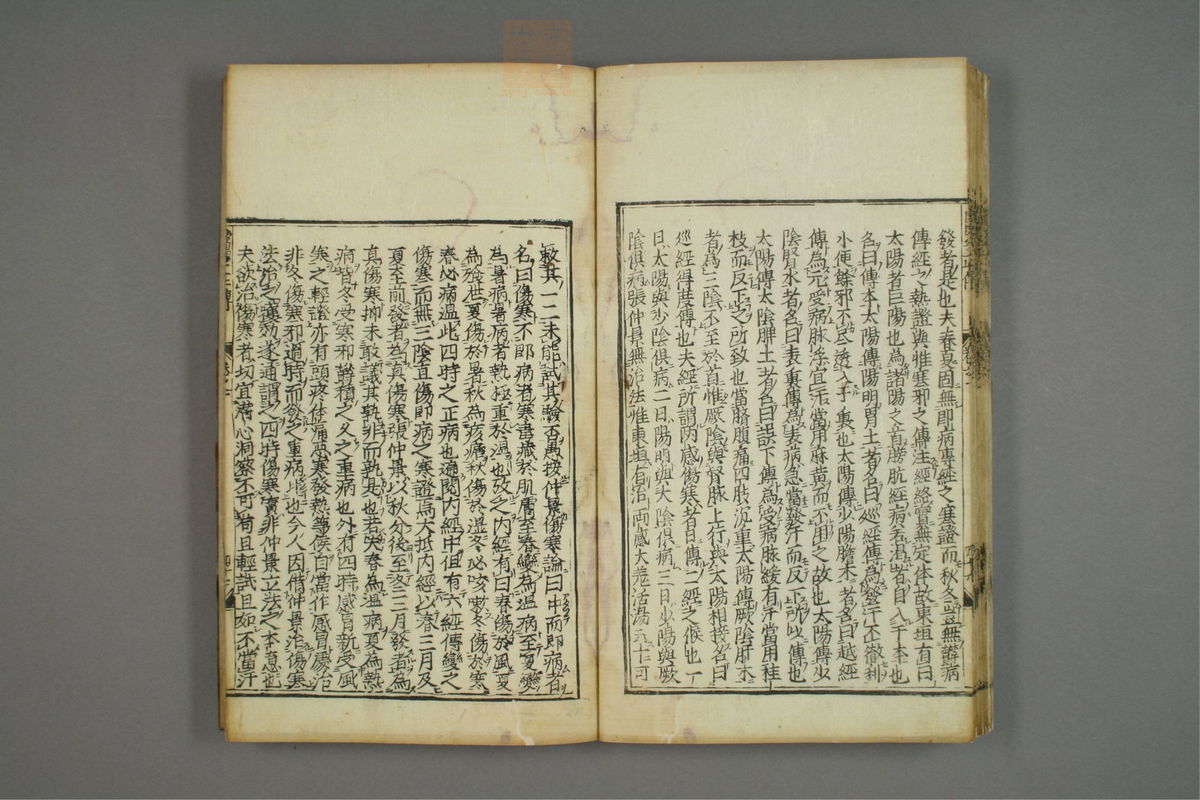 發者是也夫春夏固無即病傳經之寒證而秋冬豈無雜病
傳經之熱證與惟寒邪之傳注經絡實無定体故東垣有曰
太陽者巨陽也為諸陽之首膀胱經病若渴者自入于本也
名曰傳本太陽傳陽明胃土者名曰巡經傳為發汗不徹利
小便餘邪不尽透入于裏也太陽傳少陽膽木者名曰越經
傳為元受病脉浮宜汗當用麻黄而不用之故也太陽傳少
陰腎水者名曰表裏傳為表病急當發汗而反下所以傳也
太陽傳太陰脾土者名曰誤下傳為受病脉緩有汗當用桂
枝而反下之所致也當腎腹痛四肢沉重太陽傳厥陰肝木
者為三陰不至於首惟厥陰與督脉上行與太陽相接名曰
巡經得度傳也夫經所謂两感傷寒者日傳二經之候也一
日太陽與少陰俱病二日陽明與太陰俱病三日少陽與厥
陰俱病張仲景無治法惟東垣有治両感大羗活湯云十可
救其一二未能試其驗否愚按仲景傷寒論曰中而即病者
名曰傷寒不即病者寒毒藏於肌膚至春變為温病至夏變
為暑病暑病者熱極重於温也攷之内經有曰春傷於風夏
為飱泄夏傷於暑秋為痎瘧秋傷於湿冬必咳嗽冬傷於寒
春必病温此四時之正病也遍閲内經中但有六經傳變之
傷寒而無三陰直傷即病之寒證焉大抵内經以春三月及
夏至前發者為真傷寒張仲景以秋分後至冬三月發者為
真傷寒抑未敢議其孰非而孰是也若夫春為温病夏為熱
病皆冬受寒邪欝積之久之重病也外有四時感冒新受風
寒之輕證亦有頭疼体痛悪寒發熱等候自當作感冒處治
非冬傷寒邪過時而發之重病比也今人因偕仲景治傷寒
法治之獲効遂通謂之四時傷寒實非仲景立法之本意也
夫欲治傷寒者切宜潜心洞察不可苟且輕試且如不當汗